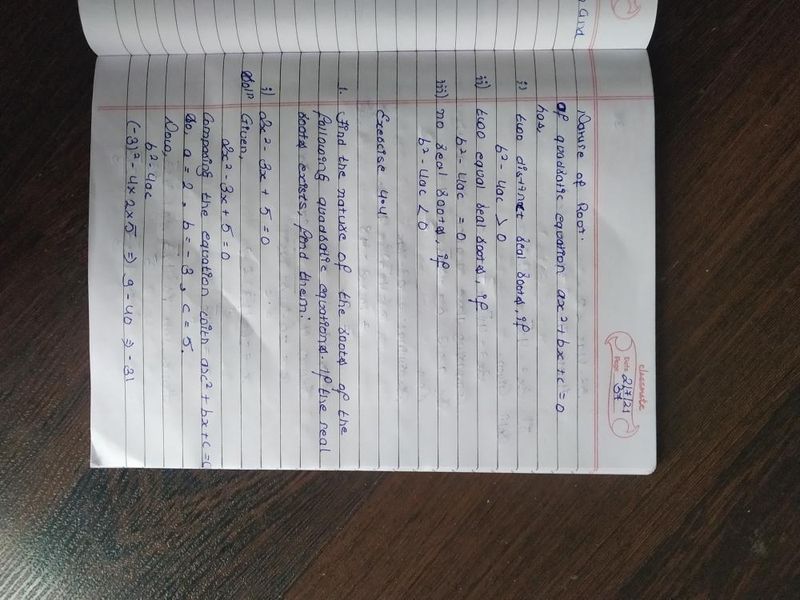 and
classmate
Date 2/7/21
Page 37
Nature of Root.
of quadratic equation ax² + bx + c = 0
has,
i) two distinct real roots, if
b² - 4ac > 0
ii) two equal real roots, if
b² - 4ac = 0
iii) no real roots, if
b² - 4ac < 0
Exercise 4.4
1. Find the nature of the roots of the
following quadratic equations. If the real
roots exists, find them:
i) 2x² - 3x + 5 = 0
Solⁿ Given,
2x² - 3x + 5 = 0
Comparing the equation with ax² + bx + c = 0
So, a = 2, b = -3, c = 5.
Now,
b² - 4ac
(-3)² - 4 x 2 x 5 ⇒ 9 - 40 ⇒ -31